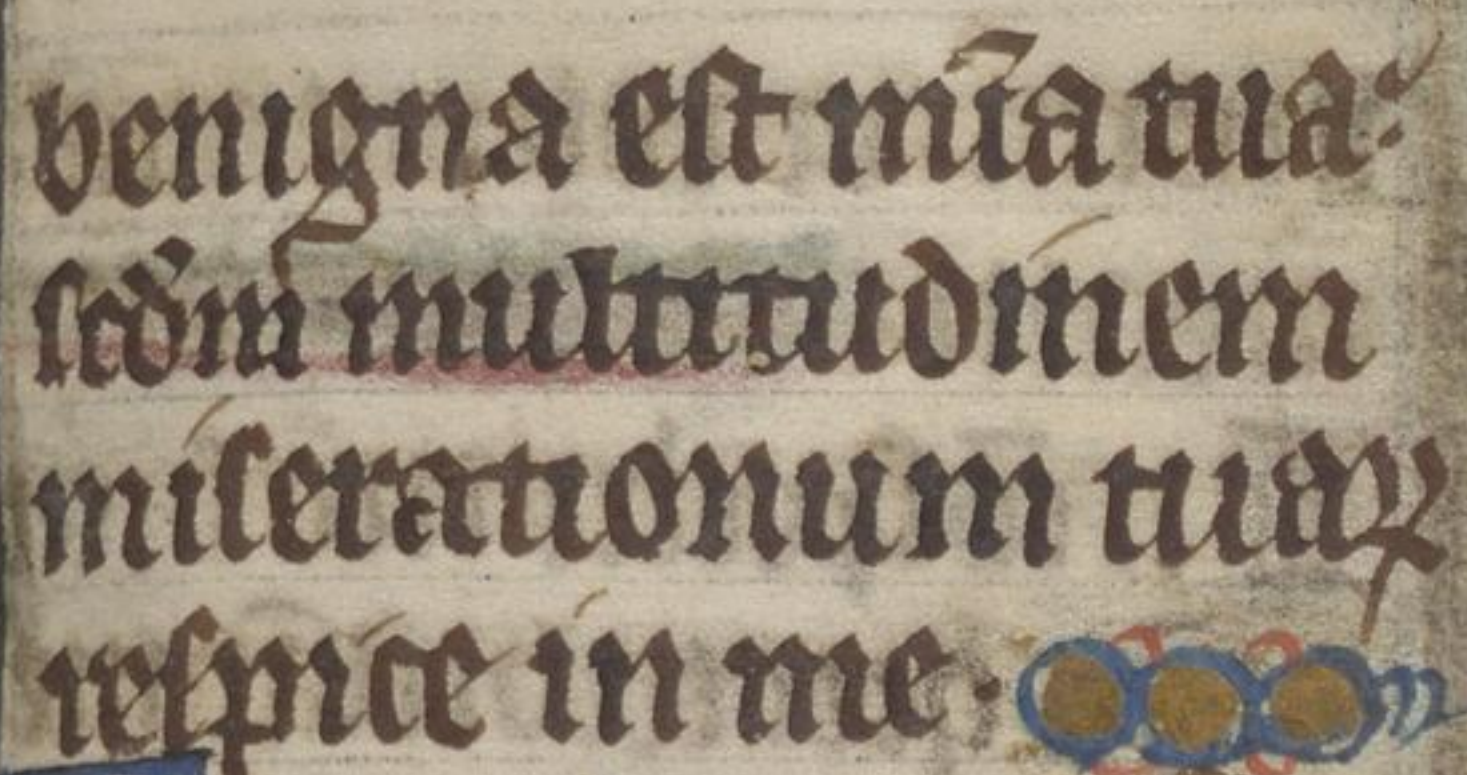 benigna est mĩa tua:
scd̾m multitudinem
miserationum tuaꝝ
respice in me.